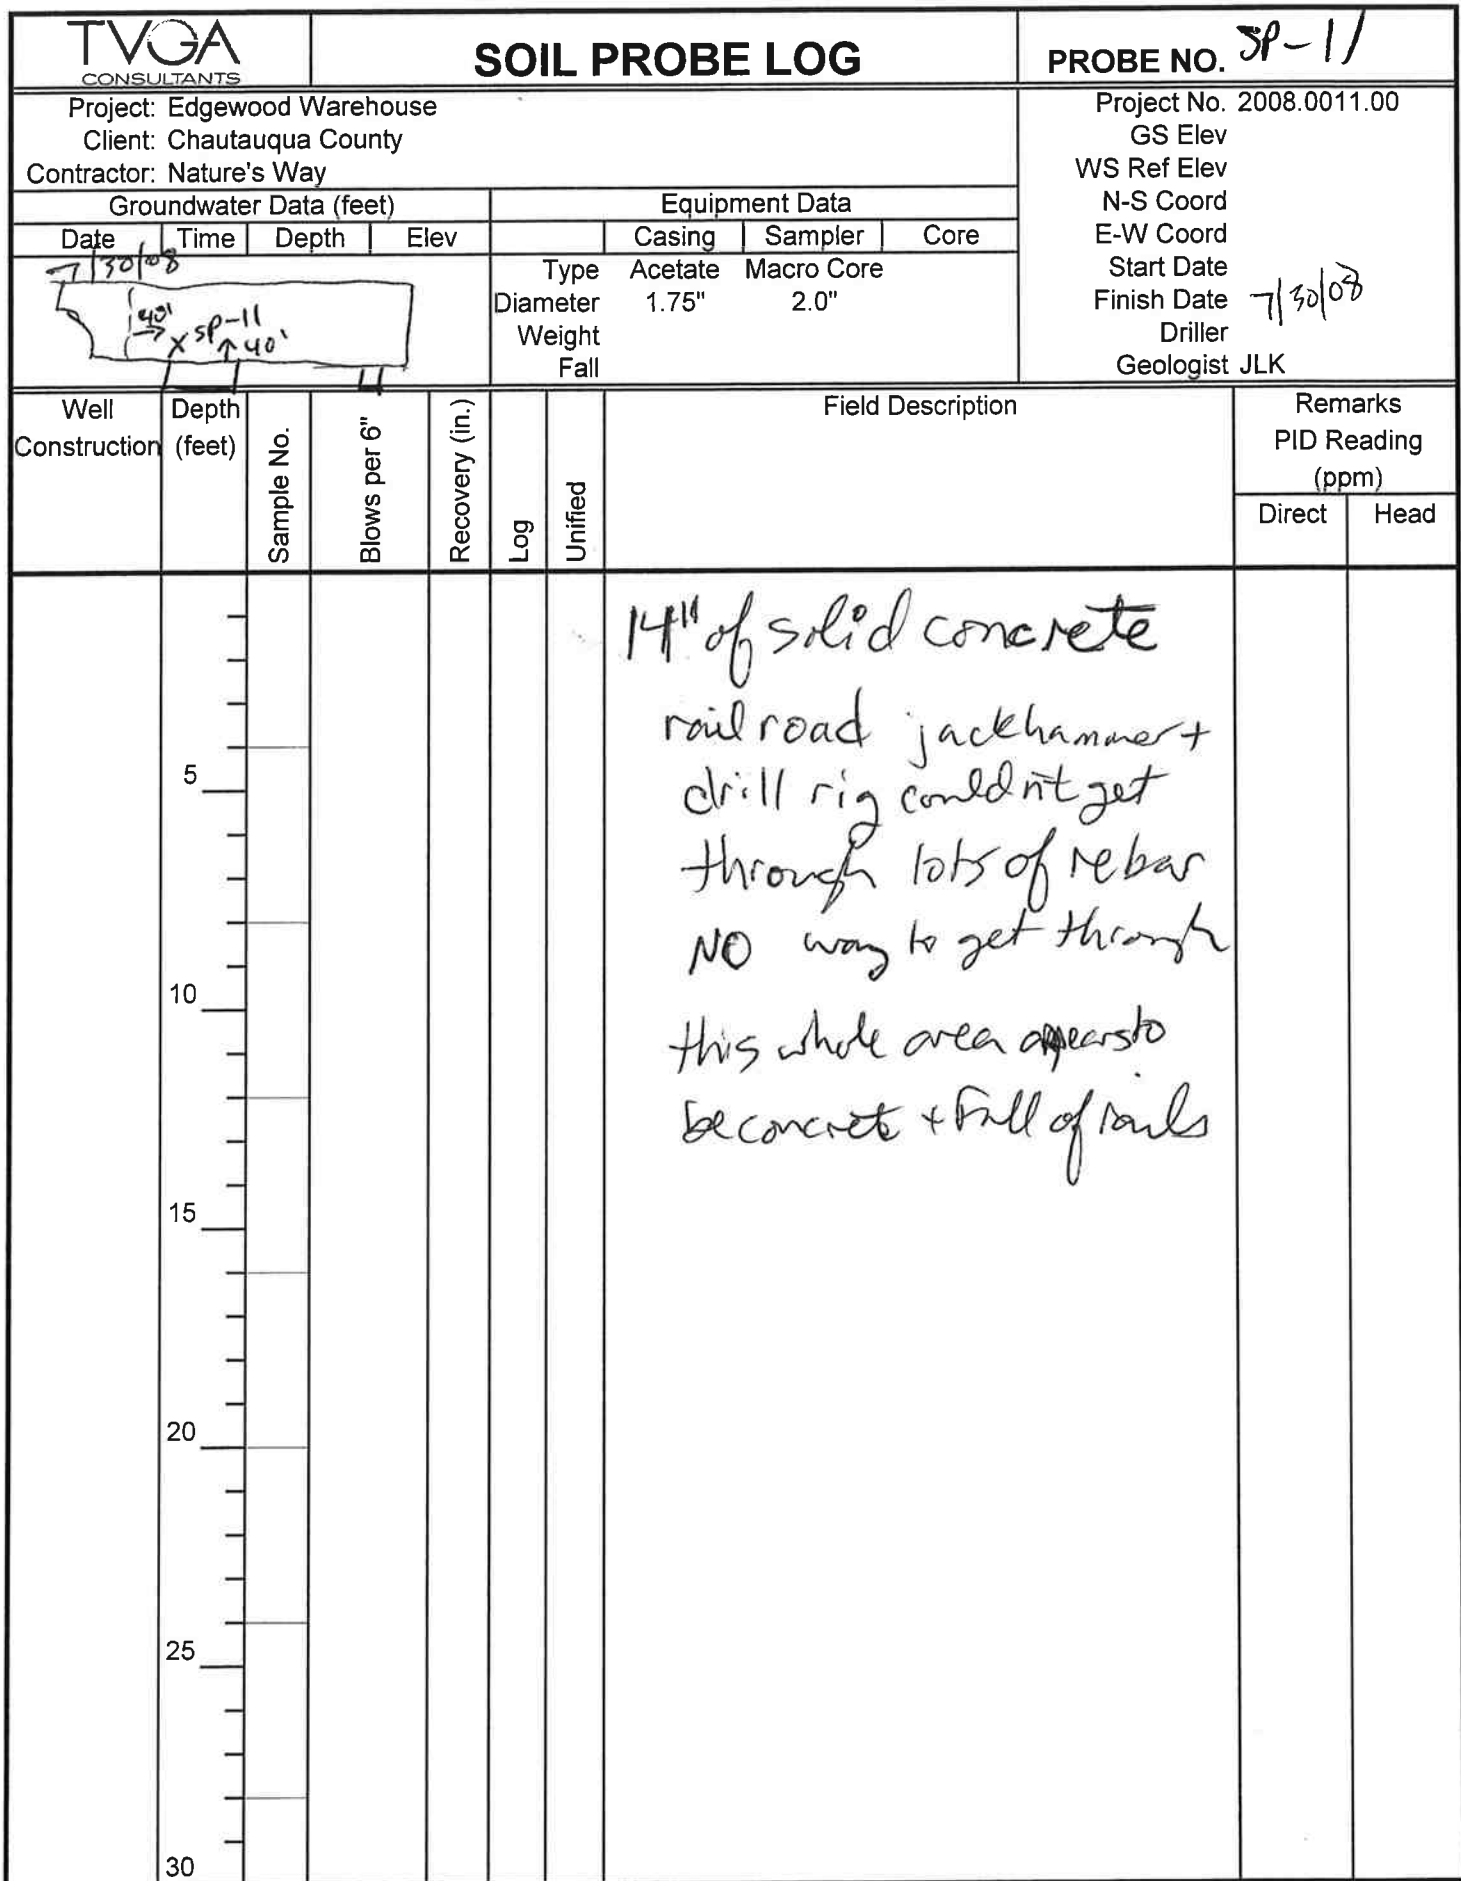 TVGA
CONSULTANTS
SOIL PROBE LOG
PROBE NO. SP-11
Project: Edgewood Warehouse
Client: Chautauqua County
Contractor: Nature's Way
Project No. 2008.0011.00
GS Elev
WS Ref Elev
N-S Coord
E-W Coord
Start Date
Finish Date 7/30/08
Driller
Geologist JLK
Groundwater Data (feet)
Date Time Depth Elev
7/30/08
40'
SP-11
40'
Equipment Data
Casing Sampler Core
Type Acetate Macro Core
Diameter 1.75" 2.0"
Weight
Fall
Well Construction
Depth (feet)
Sample No.
Blows per 6"
Recovery (in.)
Log
Unified
Field Description
Remarks
PID Reading
(ppm)
Direct Head
14" of solid concrete
railroad jackhammer +
drill rig couldn't get
through lots of rebar
NO way to get through
this whole area appears to
be concrete + full of rails
5
10
15
20
25
30